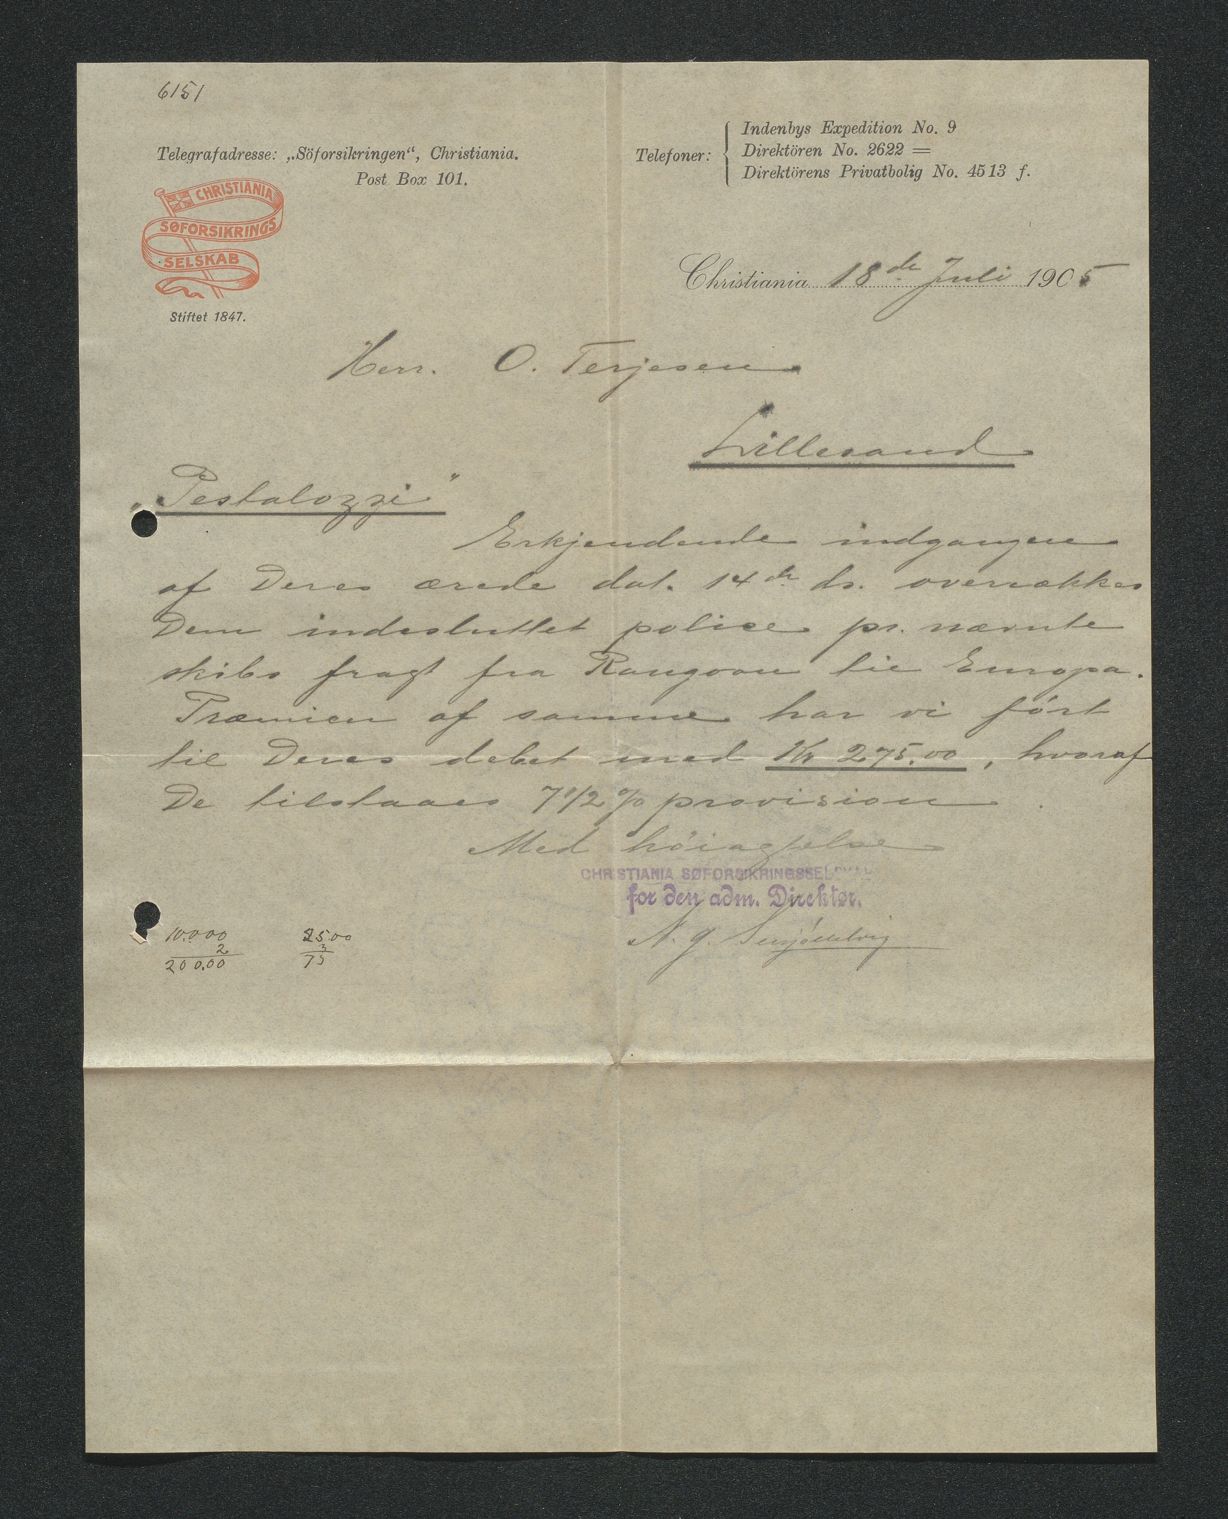 6151
Telegrafadresse: „Söforsikringen“, Christiania.
Post Box 101.
Telefoner:
Indenbys Expedition No. 9
Direktören No. 2622 =
Direktörens Privatbolig No. 4513 f.
CHRISTIANIA
SØFORSIKRINGS
SELSKAB
Stiftet 1847.
Christiania 18de Juli 1905
Herr. O. Terjesen
Lillesand
„Pestalozzi"
Erkjendende indgangen
af Deres ærede dat. 14de ds. overrækkes
Dem indesluttet police pr. nævnte
skibs fragt fra Rangoon til Europa.
Præmien af samme har vi ført
til Deres debet med Kr 275.00, hvoraf
De tilstaaes 7 1/2 % provision.
Med høiagtelse
CHRISTIANIA SØFORSIKRINGSSELSKAB
for den adm. Direktør.
N. J.
10.000
2
200.00
2500
3
75